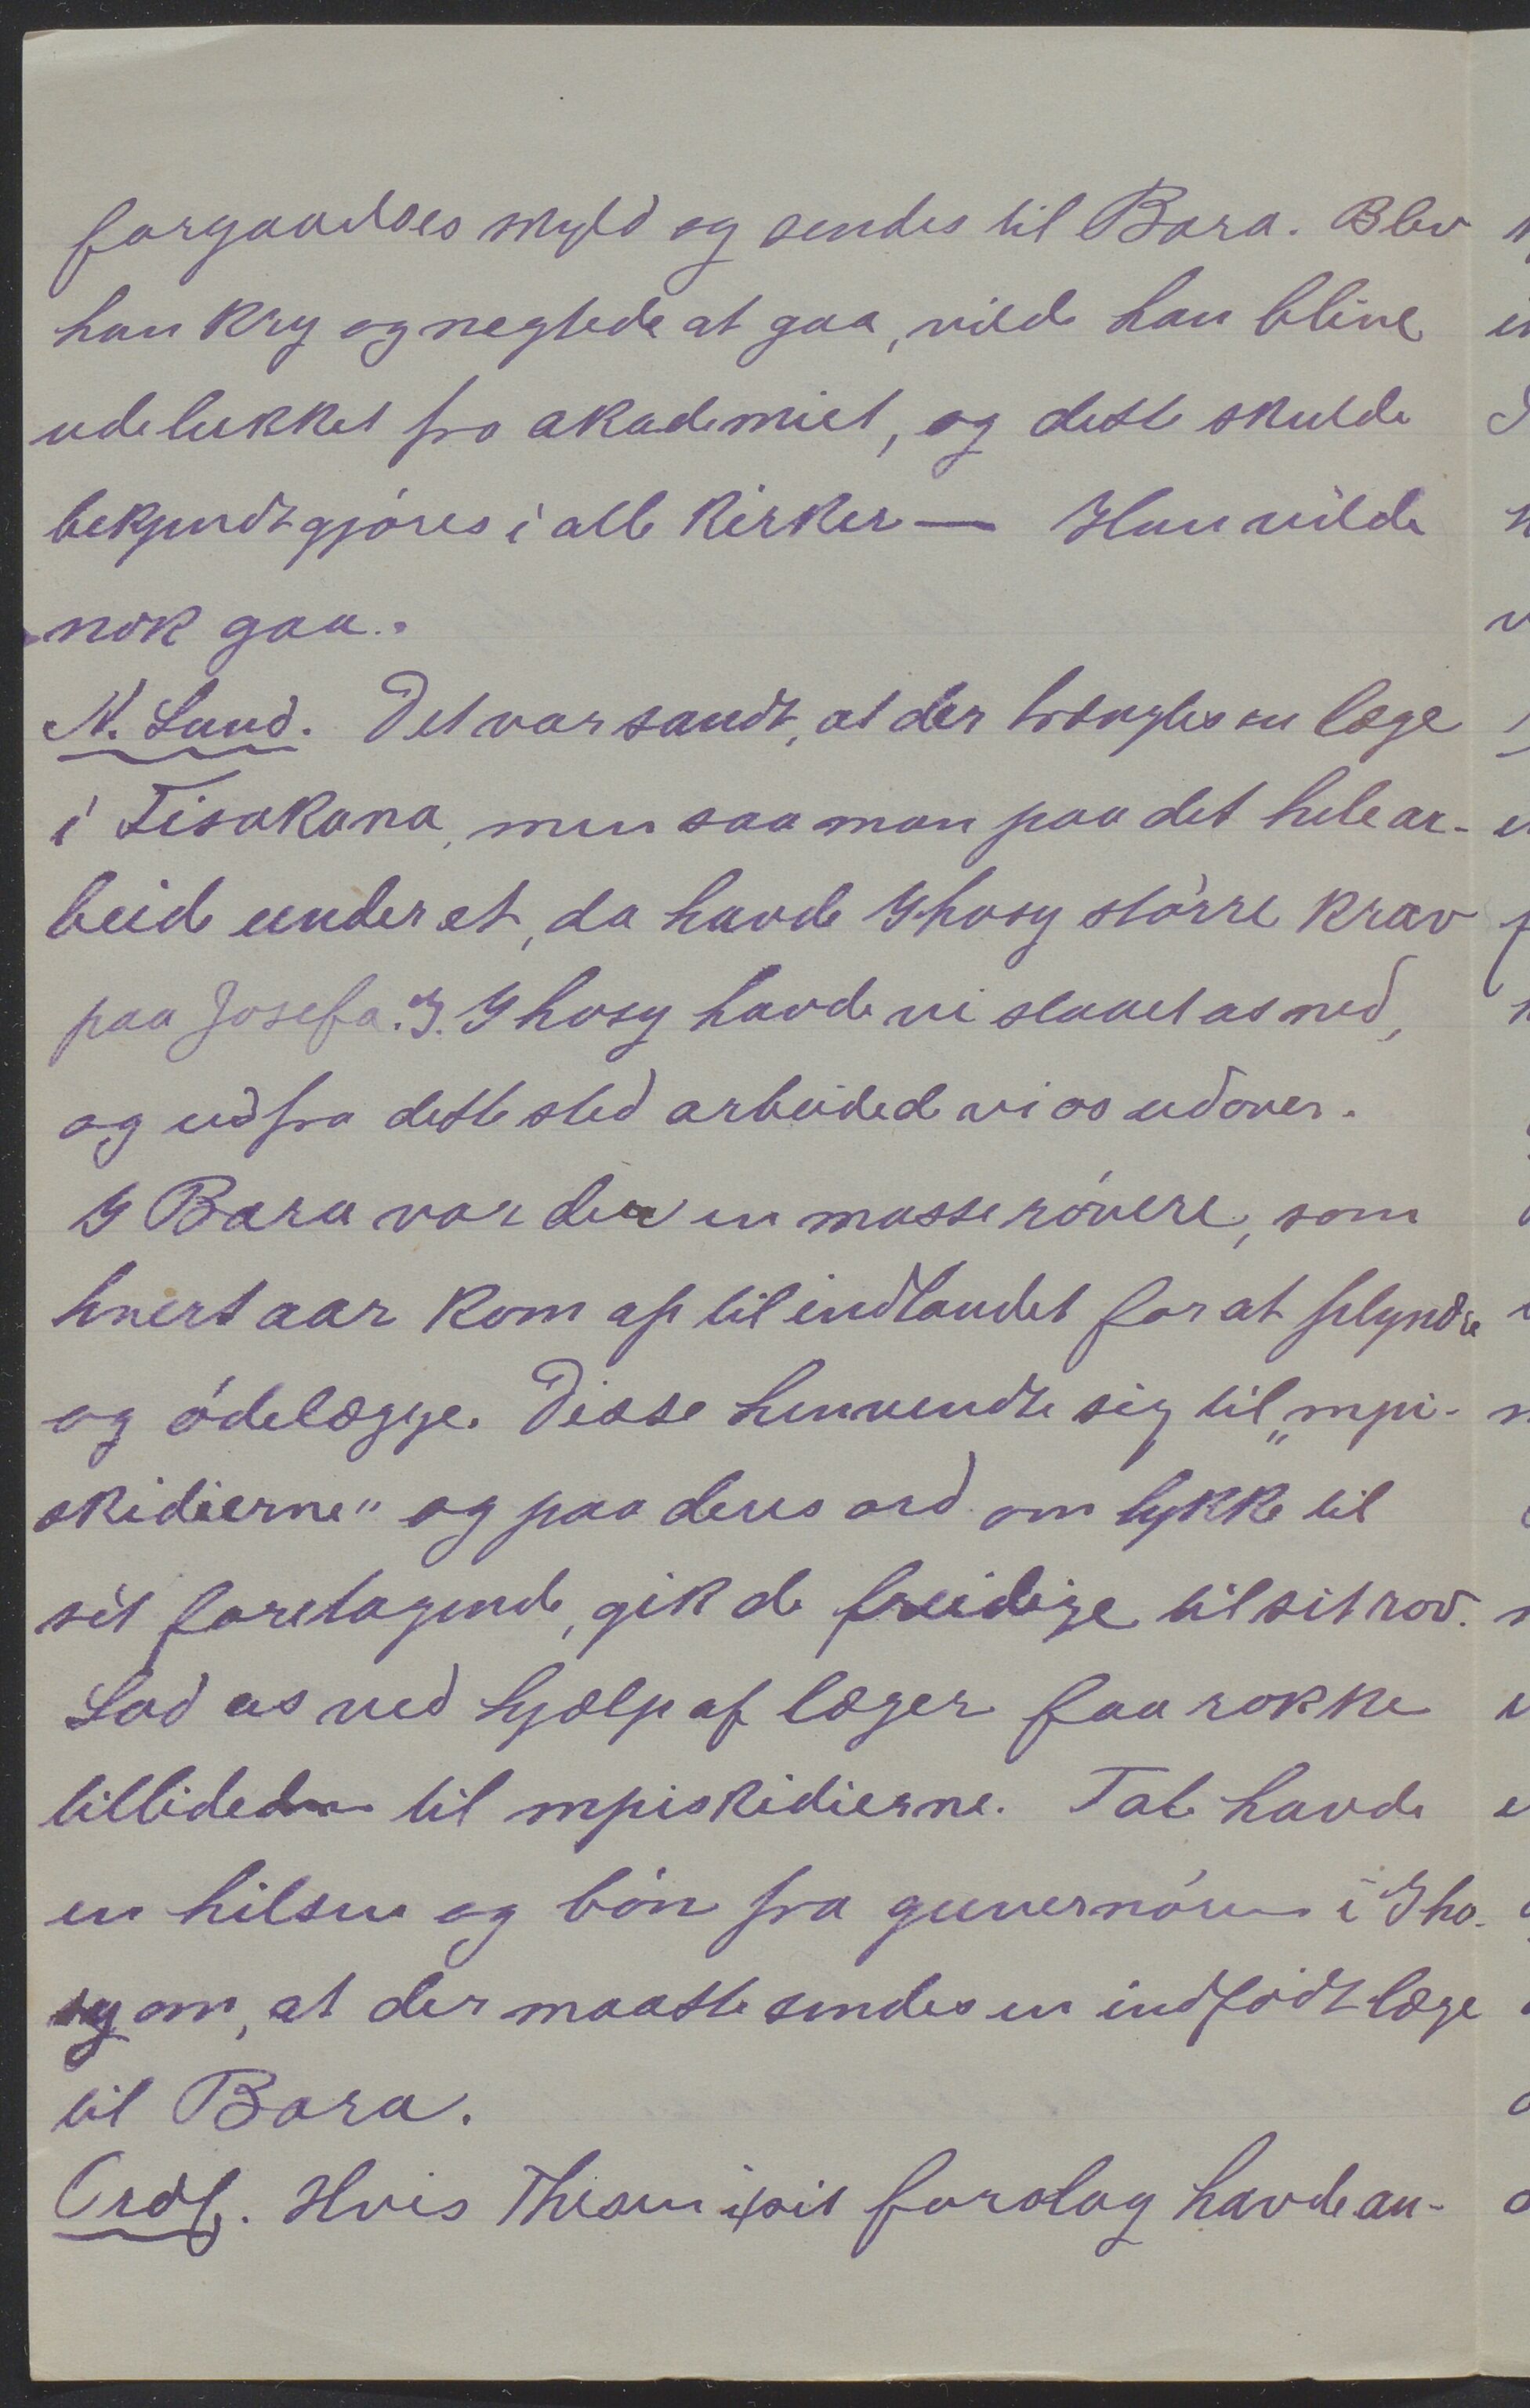 forgaaelses skyld og sendes til Bara. Blev
han kry og negtede at gaa, vilde han blive
udelukket fra akademiet, og dette skulde
bekjendtgjöres i alle kirker — Han vilde
nok gaa.
N. Lund. Det var sandt, at der trængtes en læge
i Tisakana, men saa man paa det hele ar-
beide under et, da havde Ihosy större krav
paa Josefa. I. Ihosy havde vi slaaet os ned,
og ud fra dette sted arbeided vi os udover.
I Bara var der en masse rövere, som
hvert aar kom op til indlandet for at plyndre
og ödelægge. Disse henvendte sig til „mpi-
skidierne" og paa deres ord om lykke til
sit foretagende, gik de freidige til sit rov.
Lad os ved hjælp af læger faa rokke
tilliden til mpiskidierne. Tal. havde
en hilsen og bön fra guvernören i Iho-
sy om, at der maatte sendes en indfödt læge
til Bara.
Ordf. Hvis Thesen i sit forslag havde an-